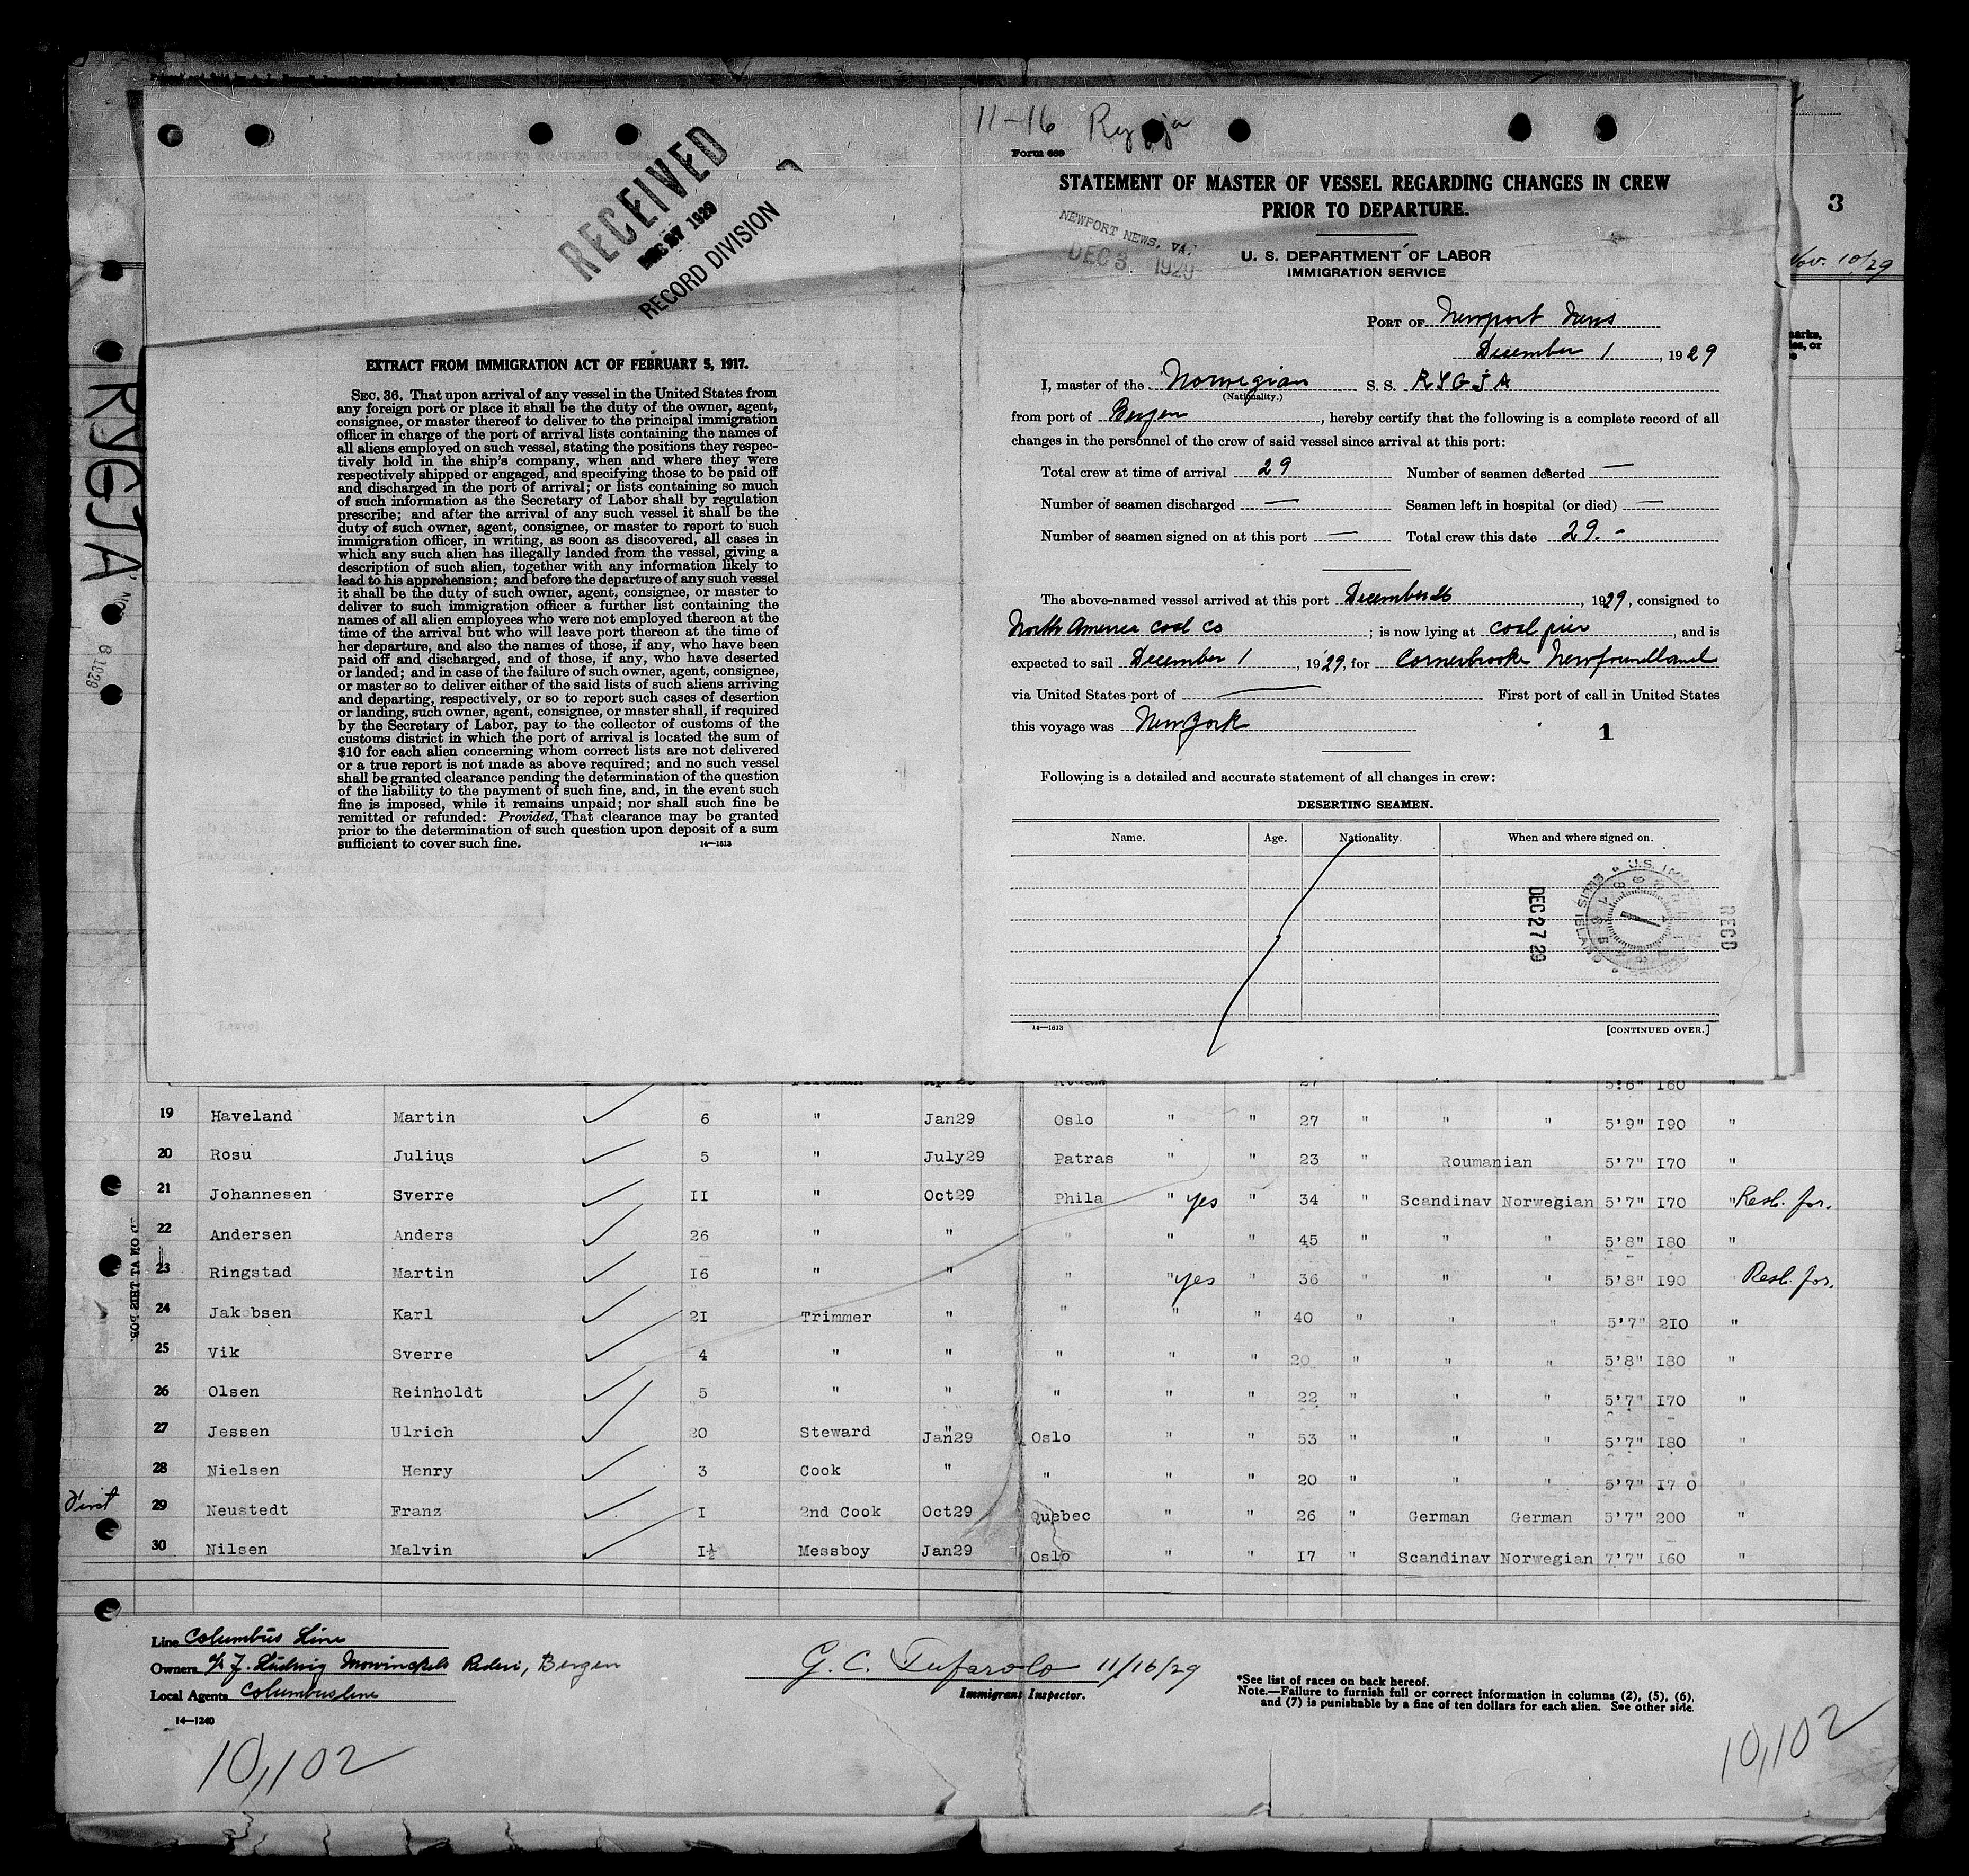 RECEIVED
DEC 27 1929
RECORD DIVISION
EXTRACT FROM IMMIGRATION ACT OF FEBRUARY 5, 1917.
SEC. 36. That upon arrival of any vessel in the United States from
any foreign port or place it shall be the duty of the owner, agent,
consignee, or master thereof to deliver to the principal immigration
officer in charge of the port of arrival lists containing the names of
all aliens employed on such vessel, stating the positions they respec-
tively hold in the ship's company, when and where they were
respectively shipped or engaged, and specifying those to be paid off
and discharged in the port of arrival; or lists containing so much
of such information as the Secretary of Labor shall by regulation
prescribe; and after the arrival of any such vessel it shall be the
duty of such owner, agent, consignee, or master to report to such
immigration officer, in writing, as soon as discovered, all cases in
which any such alien has illegally landed from the vessel, giving a
description of such alien, together with any information likely to
lead to his apprehension; and before the departure of any such vessel
it shall be the duty of such owner, agent, consignee, or master to
deliver to such immigration officer a further list containing the
names of all alien employees who were not employed thereon at the
time of the arrival but who will leave port thereon at the time of
her departure, and also the names of those, if any, who have been
paid off and discharged, and of those, if any, who have deserted
or landed; and in case of the failure of such owner, agent, consignee,
or master so to deliver either of the said lists of such aliens arriving
and departing, respectively, or so to report such cases of desertion
or landing, such owner, agent, consignee, or master shall, if required
by the Secretary of Labor, pay to the collector of customs of the
customs district in which the port of arrival is located the sum of
$10 for each alien concerning whom correct lists are not delivered
or a true report is not made as above required; and no such vessel
shall be granted clearance pending the determination of the question
of the liability to the payment of such fine, and, in the event such
fine is imposed, while it remains unpaid; nor shall such fine be
remitted or refunded: Provided, That clearance may be granted
prior to the determination of such question upon deposit of a sum
sufficient to cover such fine. 14—1613
11-16 Rygja
Form 689
STATEMENT OF MASTER OF VESSEL REGARDING CHANGES IN CREW
PRIOR TO DEPARTURE.
NEWPORT NEWS, VA.
DEC 3 1929
U. S. DEPARTMENT OF LABOR
IMMIGRATION SERVICE
PORT OF Newport News
December 1, 1929
I, master of the Norwegian S. S. RYGJA
(Nationality.)
from port of Bergen, hereby certify that the following is a complete record of all
changes in the personnel of the crew of said vessel since arrival at this port:
Total crew at time of arrival 29 Number of seamen deserted —
Number of seamen discharged — Seamen left in hospital (or died) —
Number of seamen signed on at this port — Total crew this date 29.-
The above-named vessel arrived at this port December, 1929, consigned to
North America Coal Co; is now lying at coal pier, and is
expected to sail December 1, 1929, for Cornerbrooke Newfoundland
via United States port of — First port of call in United States
this voyage was New York
1
Following is a detailed and accurate statement of all changes in crew:
DESERTING SEAMEN.
Name. Age. Nationality. When and where signed on.
DEC 27 29
RECD
U.S. IMM
ELLIS ISLAND
14—1613 [CONTINUED OVER.]
3
Nov. 10/29
RYGJA
5'6" 160 "
19 Haveland Martin 6 " Jan29 Oslo " " 27 " " " 5'9" 190 "
20 Rosu Julius 5 " July29 Patras " " 23 " Roumanian 5'7" 170 "
21 Johannesen Sverre II " Oct29 Phila " yes " 34 " Scandinav Norwegian 5'7" 170 " Resh. for.
22 Andersen Anders 26 " " " " 45 " " " 5'8" 180 "
23 Ringstad Martin 16 " " " " yes " 36 " " " 5'8" 190 " Resh. for.
24 Jakobsen Karl 21 Trimmer " " " " 40 " " " 5'7" 210 "
25 Vik Sverre 4 " " " " " 20 " " " 5'8" 180 "
26 Olsen Reinholdt 5 " " " " " 22 " " " 5'7" 170 "
27 Jessen Ulrich 20 Steward Jan29 Oslo " " 53 " " " 5'7" 180 "
28 Nielsen Henry 3 Cook " " " " 20 " " " 5'7" 170
First 29 Neustedt Franz I 2nd Cook Oct29 Quebec " " 26 " German German 5'7" 200 "
30 Nilsen Malvin I½ Messboy Jan29 Oslo " " 17 " Scandinav Norwegian 7'7" 160 "
Line Columbus Line
Owners A/S J. Ludwig Mowinckels Rederi, Bergen
Local Agents Columbusline
14—1240
G. C. Tufarolo 11/16/29
Immigrant Inspector.
*See list of races on back hereof.
Note.—Failure to furnish full or correct information in columns (2), (5), (6),
and (7) is punishable by a fine of ten dollars for each alien. See other side.
10,102
10,102